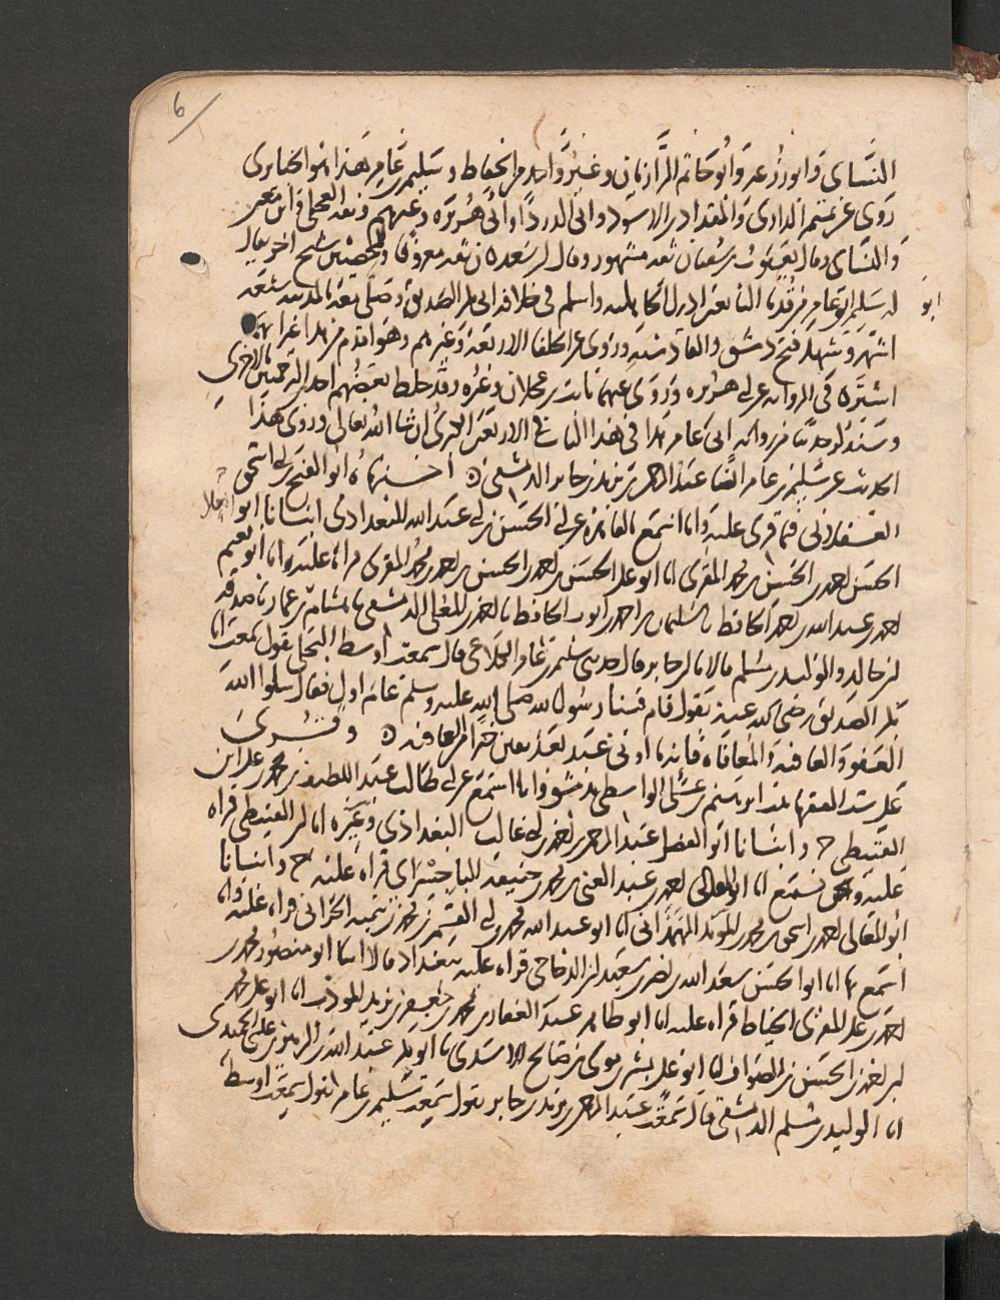 6
النَّسَاى وَابورُزعَه وَابُوحَاتم الرَّازيَان وغيرُ وَاحدٍ من الحفاط وسُلَيم بن عَامِر هَذا هُو الخبايرى
رَوَى عن تميم الدارى وَالمقداد بن الاسود وابى الدرداءِ وَابى هُرَيرَه وغيرهم وثقه العجلى وابن
وَالنسَاى وقال يعقوب بن سُفيان ثقه مشهور وقال ابن سَعد كان ثقه معروفا وللحمصيين شيخ اخر يقال
له سُلَيم ابو عَامِر النابعين ادرك الجاهليه واسلم فى خلافه ابى بكر الصّديق وصَلى معه بالمدينه
ابو
اشهر وَشهدَ فتح دمشق والقادسيه ورَوَى عن الخلفا الاربعَه وَغيرهم وهو اقدم من هذا
اشتركا فى الروايه عن ابى هريره وَرَوَى عنهما ثابت بن عجلان وغيره وقد خلط بعضُهم احد الترجمتين بالاخرى
وسَنذكر حديثا من روايه ابى عَامر هذا فى هذا الباب فى الاربَعين الاخرى ان شا الله تعالى وروى هذا
الحديث عن سُليم بن عامر ايضًا عَبد الرحمن بن يزيد بن جابر الدمشقى اخبرناهُ ابو الفتح بن ابى اسحق
العسقلانى فيما قرى عليه وَانا اسمع بالقاهره عن ابى الحسَن بن ابى عبَد الله البغدادى انبانا ابو
الحسَن بن احمد بن الحسَن بن محمد المقرى انا ابو على الحسَن بن احمد بن الحسَن بن احمد بن محمد المقرى قراهً عليه وَانا ابو نعَيم
احمد بن عبد الله بن احمد الحافظ نا سُليمان بن احمد بن ايوب الحافظ نا احمد بن المعلى الدمشقى نا هشام بن عمار نا صدقه
بن خالد والوليد بن مُسْلم قالا نا ابن جابر قال حدثنى سُليم بن عَامر الكلاعى قال سمعت اوسط البجلى يقول سَمعت ابا
بكر الصّديق رضى الله عنه يَقول قام فينا رسُول الله صَلى الله عليه وسَلم عام اول فقال سلوا الله
العَفو وَالعافيه وَالمعافاه فانه ما اوتى عبَد بعَد يقين خيرًا من العافيه وقُرِىَ
على سَت الفقها بنت ابرَاهيم بن عَلى الواسطى بدمشق وانا اسمَع عن ابى طالب عبَد اللطيف بن محمد بن على ابن
القبيطى ح وانبانا ابو الفضل عبَد الرحمن بن احمد بن ابى غالب البغدادى وغيره انا ابن القبيطى قراه
عليه ونحن نسمَع انا ابو المعالى احمد بن عبد الغنى بن محمد بن حنيفه الباجسراى قراه عليه ح وانبانا
ابو المعَالى احمد بن اسحق بن محمد بن المؤيد الهمذانى انا ابو عبد الله محمد بن ابى القسم بن محمد بن تيميه الحرانى قراه عليه وَانا
اسمع نا انا ابو الحسَن سعَد الله بن نصر بن سعيد بن الدجاجى قراه عليه ببغداد قالا انا ابو منصُور محمد بن
احمد بن على المقرى الخياط قراه عليه انا ابو طاهر عبَد الغفار بن محمد بن جَعفر بن زيد المؤذب انا ابو على محمد
بن احمد بن الحسَن بن الصواف انا ابو على بشر بن موسى بن صَالح الاسَدى نا ابو بكر عبَد الله بن الزبير بن عيسى الحميدى
انا الوليد بن مُسْلم الدمشقى قال سَمعتُ عبَد الرحمن بن يزيد بن جابر يقول سَمعت سُليم بن عامر يقول سمعَت اوسط